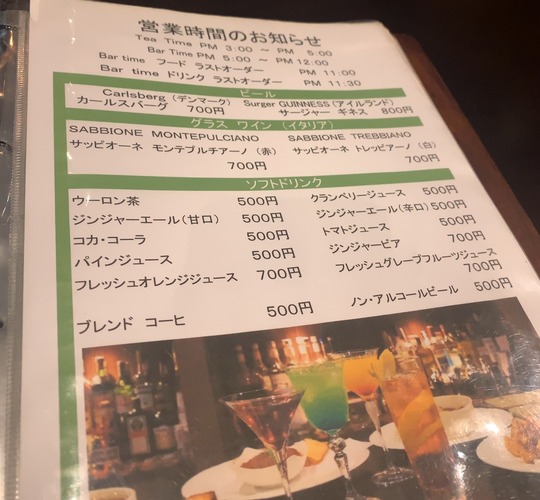 営業時間のお知らせ
Tea Time PM 3:00 ～ PM 5:00
Bar Time PM 5:00 ～ PM 12:00
Bar time フード ラストオーダー PM 11:00
Bar time ドリンク ラストオーダー PM 11:30
ビール
Carlsberg (デンマーク) Surger GUINNESS (アイルランド)
カールスバーグ 700円 サージャー ギネス 800円
グラス ワイン (イタリア)
SABBIONE MONTEPULCIANO SABBIONE TREBBIANO
サッビオーネ モンテプルチアーノ (赤) サッビオーネ トレッビアーノ (白)
700円 700円
ソフトドリンク
ウーロン茶 500円 クランベリージュース 500円
ジンジャーエール(甘口) 500円 ジンジャーエール(辛口) 500円
コカ・コーラ 500円 トマトジュース 500円
パインジュース 500円 ジンジャービア 700円
フレッシュオレンジジュース 700円 フレッシュグレープフルーツジュース
700円
ブレンド コーヒ 500円 ノン・アルコールビール 500円